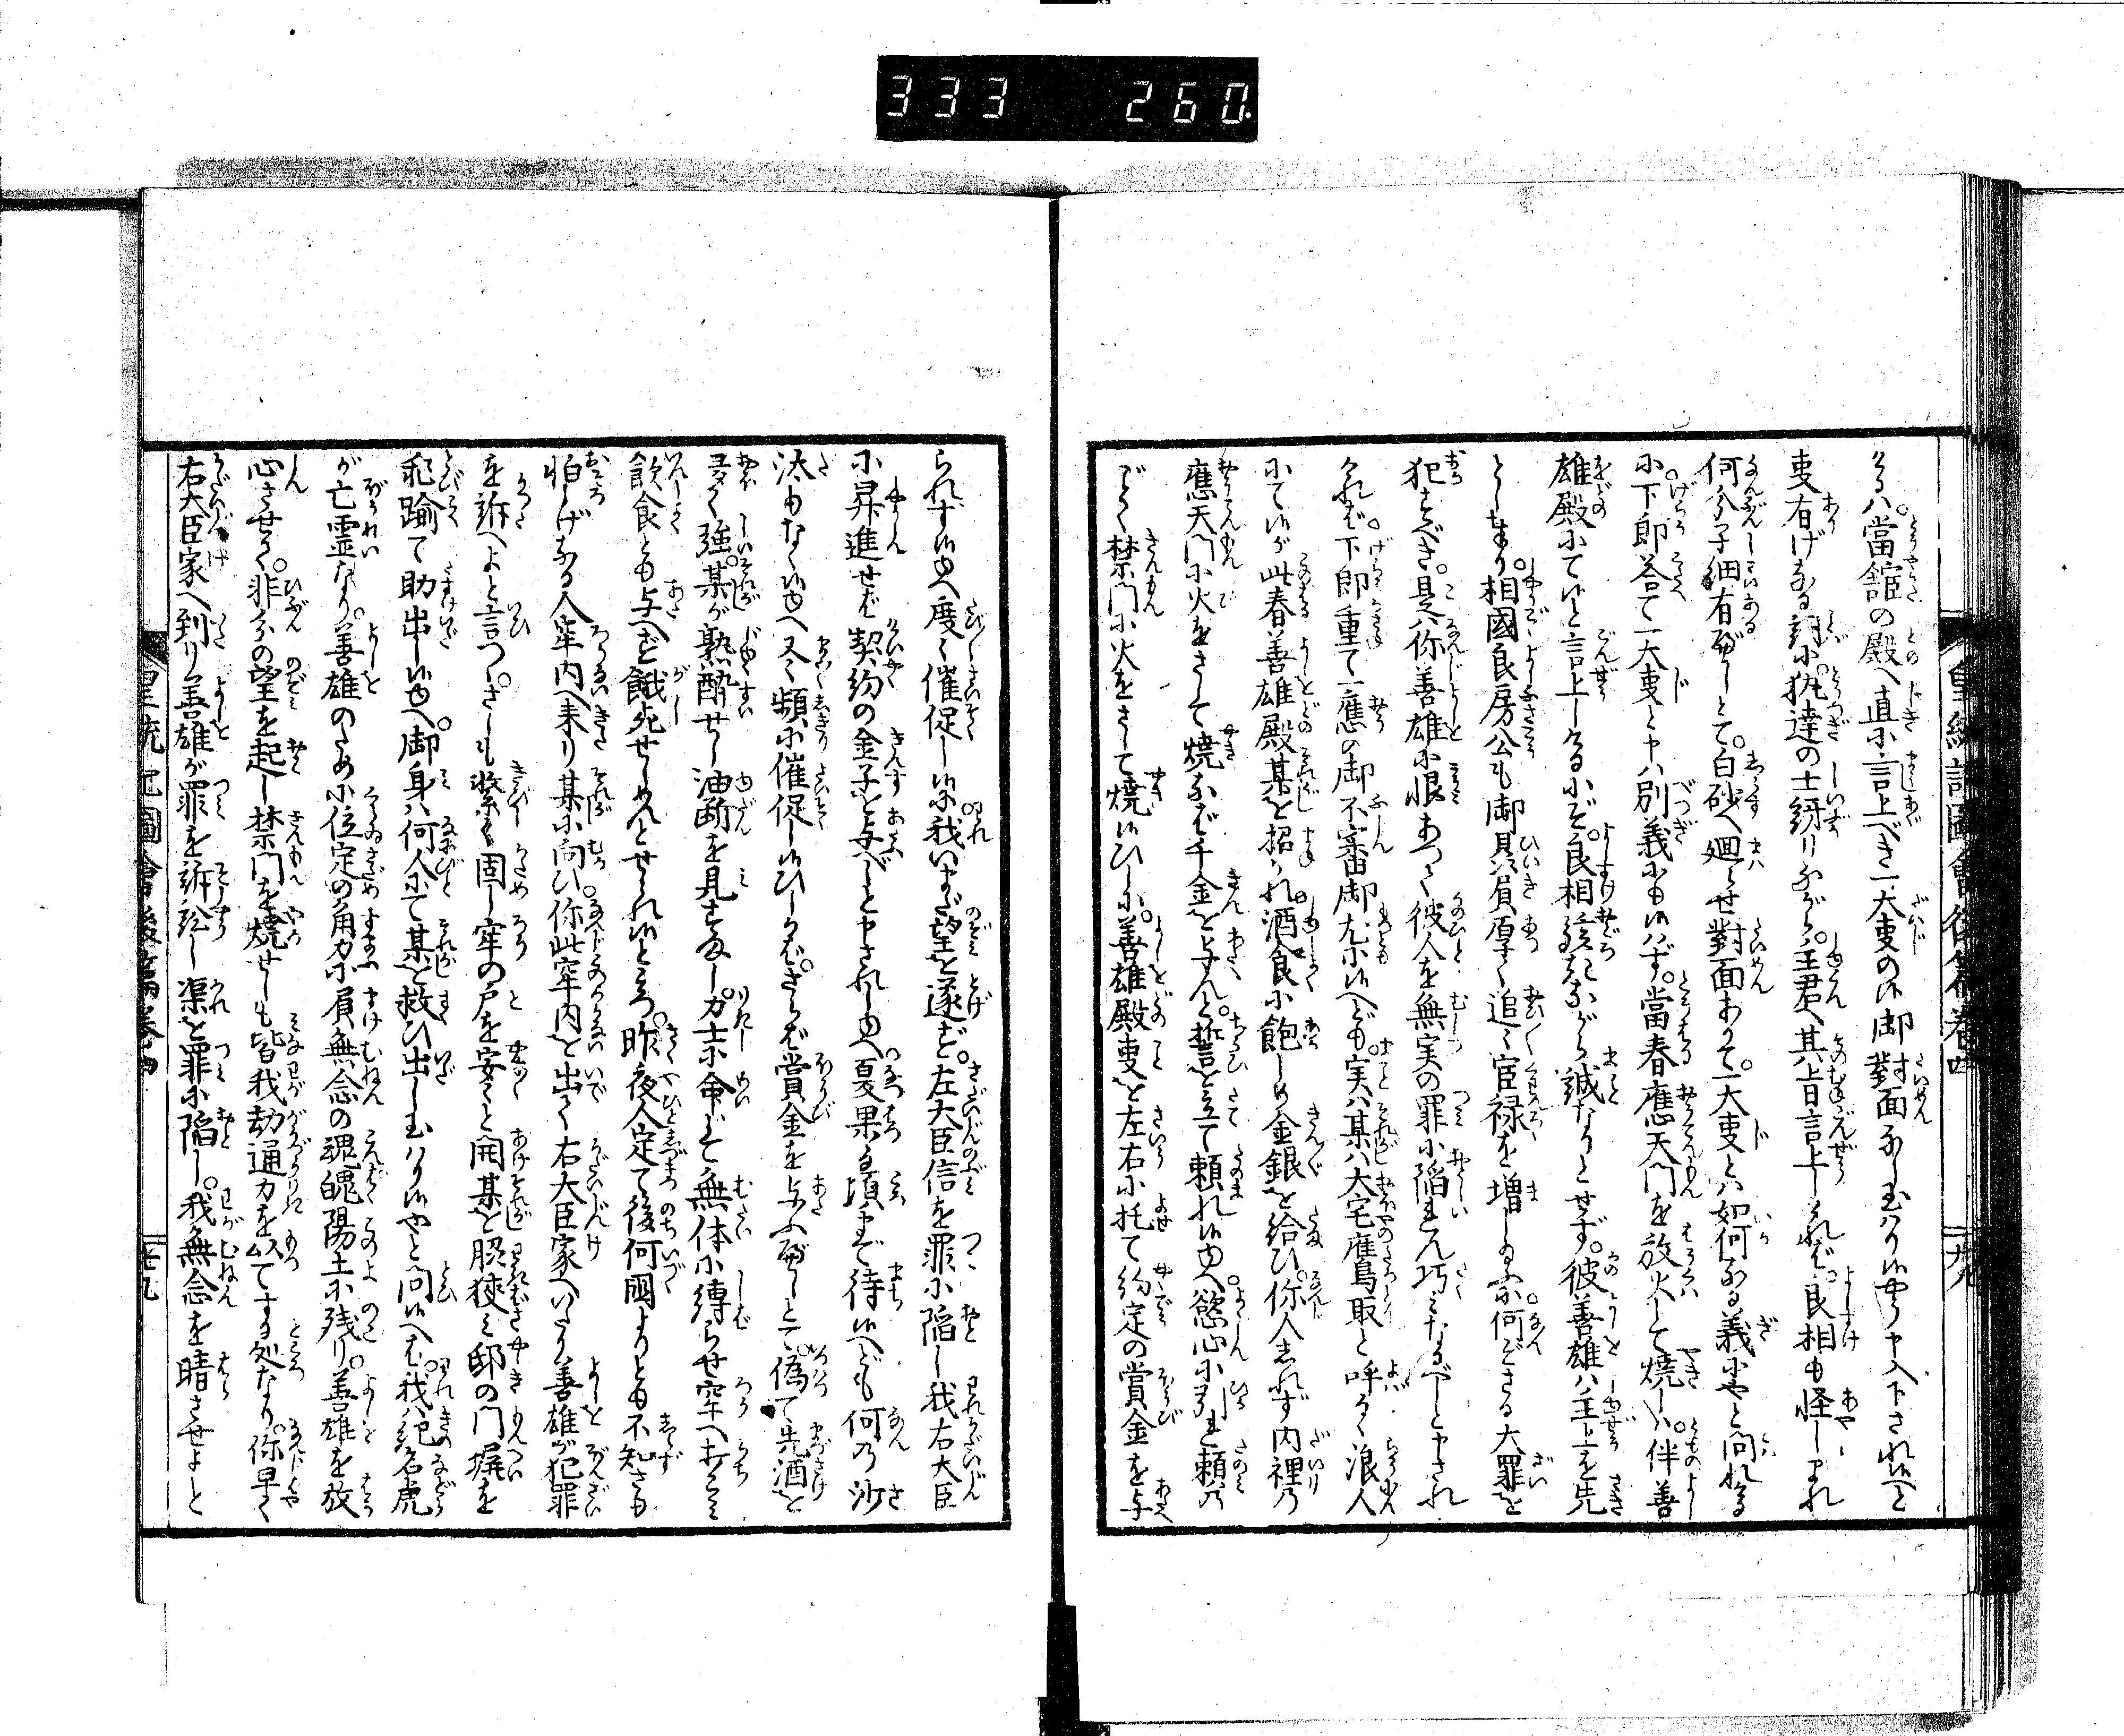 333 260
ける八。當舘の殿へ直に言上べき一大事の候御對面なし玉はり候やう申入下され候へと
事有げなる詞に。執達の士訝りながら。主君へ其旨言上しければ良相も怪しまれ
何分子細有べしとて。白砂へ廻らせ對面ありて。一大事とは如何なる義にやと問れける
に。下郎答て一大事と申八別義にも候はず。當春應天門を放火して焼しは伴善
雄殿にて候と言上しけるにぞ。良相駭きながら誠なりとせず。彼善雄八主上を先
とし奉り。相國良房公も御贔屓厚く追々官禄を増し玉ふに。何ぞさる大罪を
犯すべき。是八你善雄に恨あつて彼人を無実の罪に陥ん巧みなるべしと申され
ければ。下郎重て一應の御不審御尤に候へども。実八某八大宅鷹取と呼るゝ浪人
にて候が此春善雄殿某を招かれ酒食に飽しめ金銀を給ひ。你人しれず内裡の
應天門に火をさして焼なば千金を与んと。誓言立て頼れ候ゆへ。慾心にひかれ頼の
ごとく禁門に火をさして焼候ひしに。善雄殿事を左右に托て約定の賞金を与
皇統記圖會後篇卷四
廿八
られず候ゆへ度々催促し候に我いまだ望を遂ず。左大臣信を罪に陥し我右大臣
に昇進せば契約の金子を与べしと申されしゆへ。夏果る頃まで待候へども何の沙
汰もなく候ゆへ又々頻に催促し候ひしかば。さらば賞金を与ふべしとて。偽て先酒を
多く強。某が熟酔せし油断を見すまし。力士に命じて無体に縛らせ牢へ打こみ
飲食とも与へず餓死せしめんとせられ候ところ。昨夜人定て後何國よりとも不知さも
怕しげなる人牢内へ来り某に向ひ。你此牢内を出て右大臣家へいたり善雄が犯罪
を訴へよと言つゝ。さしも緊く固し牢の戸を安々と開某を脇狭み邸の門塀を
飛踰て助出し候ゆへ。御身八何人にて某を救ひ出し玉はり候やと問候へば。我八紀名虎
が亡霊なり。善雄のために位定の角力に負無念の魂魄陽土に残り。善雄を放
心させて。非分の望を起し禁門を焼せしも皆我劫通力を以てする処なり。你早く
右大臣家へ到り善雄が罪を訴訟し渠を罪に陥し。我無念を晴させよと
皇統記圖會後篇卷四
廿九